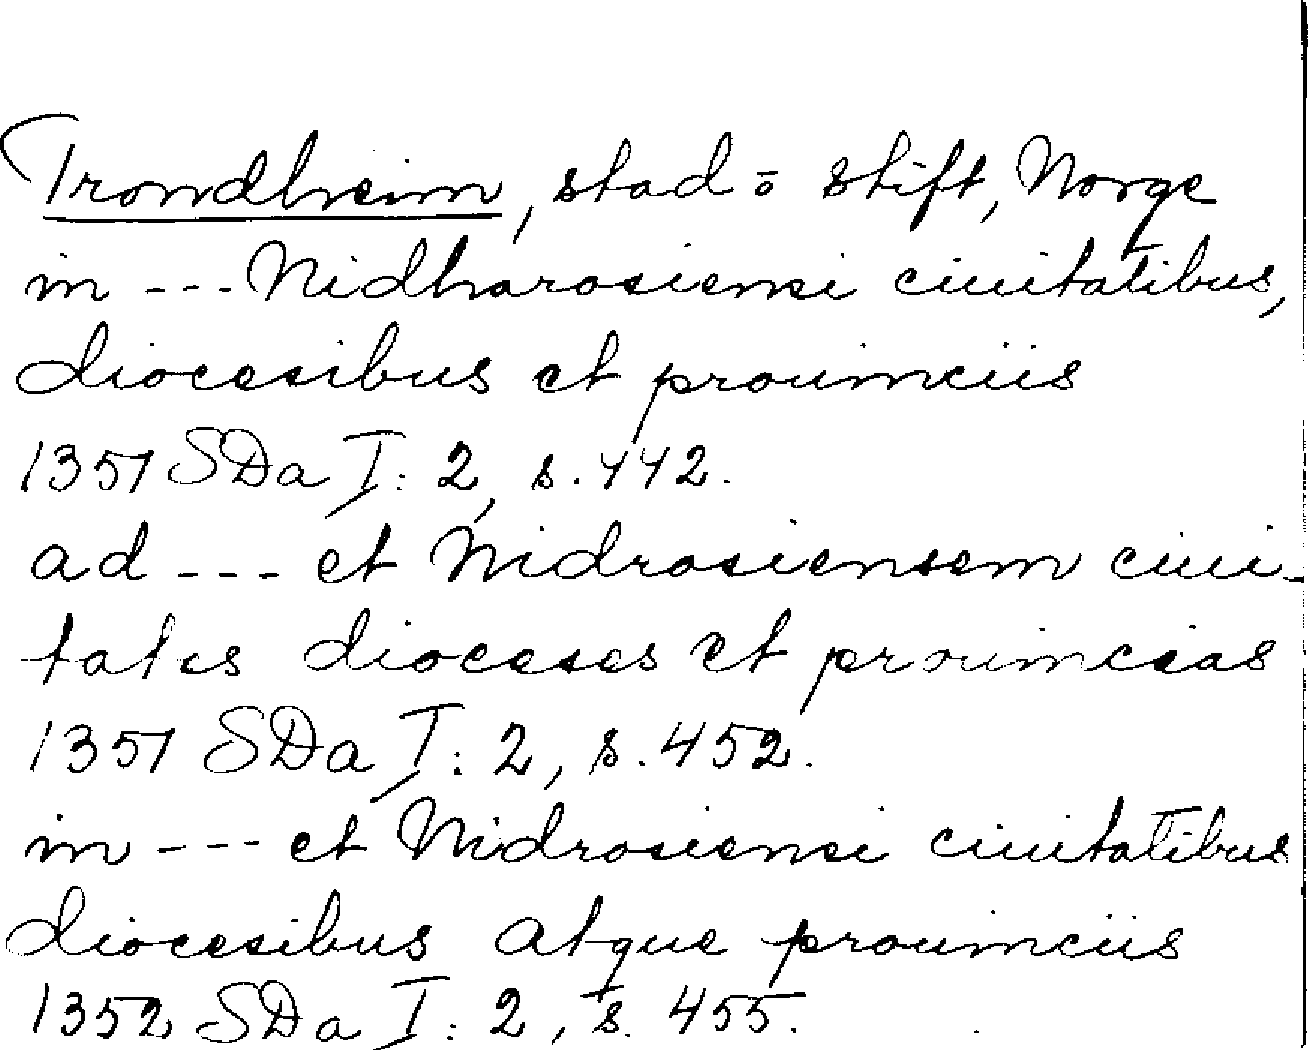 Trondheim, stad o stift, Norge
in --- Nidharosiensi ciuitatibus,
diocesibus et prouinciis
1351 SDa I: 2, s. 442.
ad --- et Nidrosiensem ciui-
tates dioceses et prouincias
1351 SDa I: 2, s. 452.
in --- et Nidrosiensi ciuitatibus
diocesibus atque prouinciis
1352 SDa I: 2, s. 455.